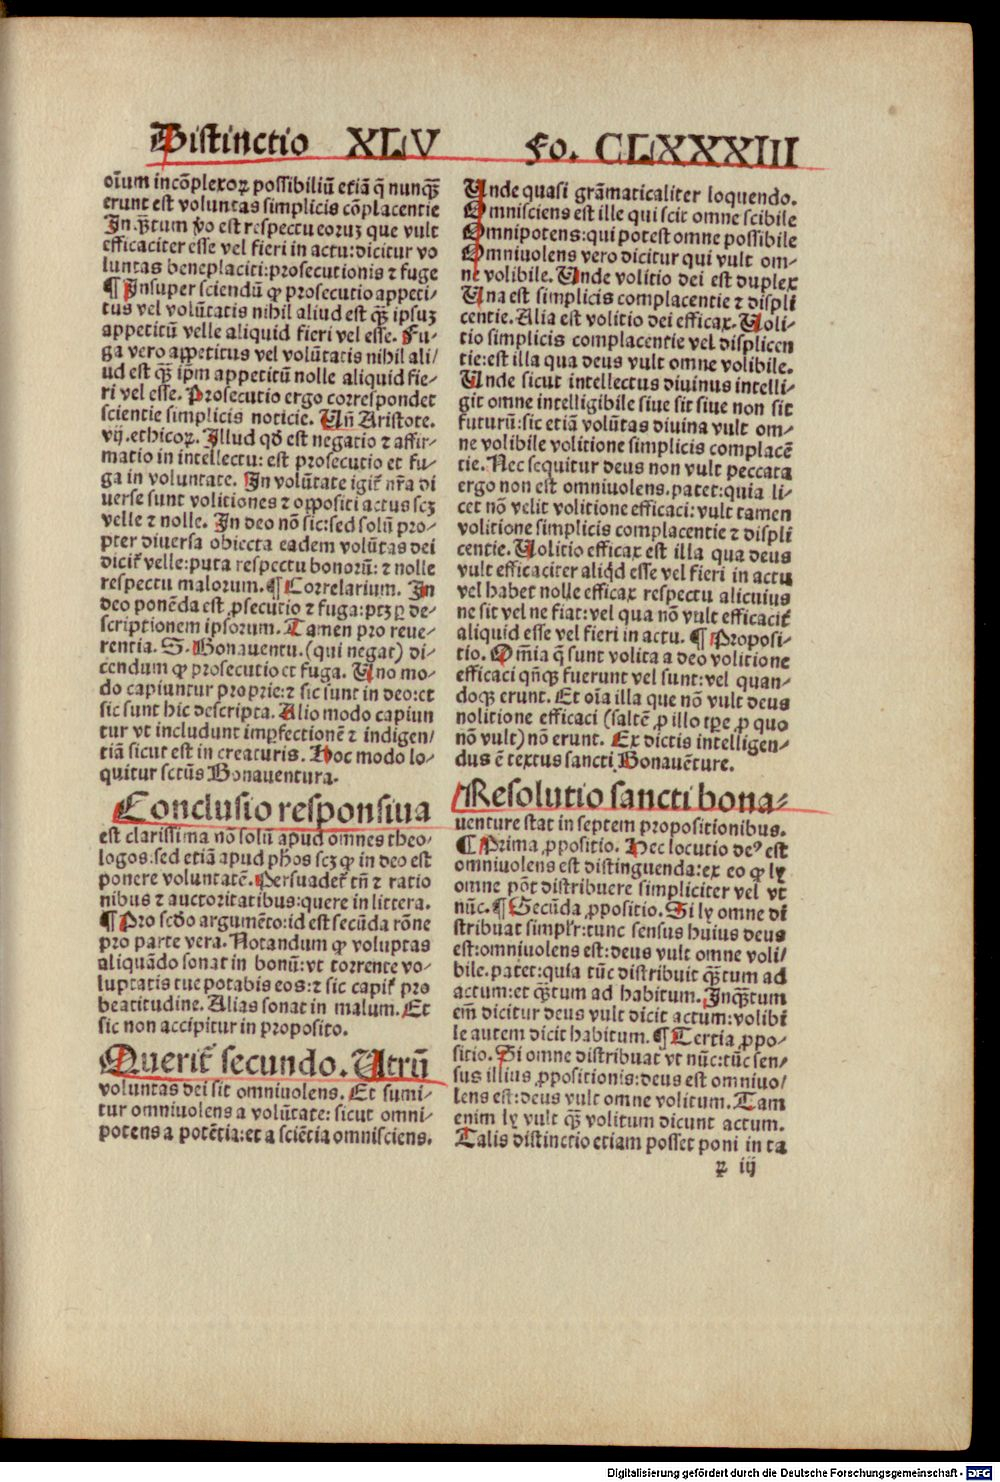 Distinctio XLV Fo. CLXXXIII
oīum incōplexoꝝ possibiliū etiā q̄ nunqꝫ
erunt est voluntas simplicis cōplacentie
In.qꝫtum v̄o est respectu eoruꝫ que vult
efficaciter esse vel fieri in actu:dicitur vo
luntas beneplaciti:prosecutionis ⁊ fuge
¶ Insuper sciendū ꝙ prosecutio appeti⸗
tus vel volūtatis nihil aliud est qꝫ ipsuꝫ
appetitū velle aliquid fieri vel esse. Fu⸗
ga vero appetitus vel volūtatis nihil ali/
ud est qꝫ ip̄m appetitū nolle aliquid fie⸗
ri vel esse. Prosecutio ergo correspondet
scientie simplicis noticie. Un̄ Aristote.
vij.ethicoꝝ. Illud qd̄ est negatio ⁊ affir⸗
matio in intellectu: est prosecutio et fu⸗
ga in voluntate. In volūtate igit᷑ nr̄a di
uerse sunt volitiones ⁊ oppositi actus scꝫ
velle ⁊ nolle. In deo nō sic:sed solū pro⸗
pter diuersa obiecta eadem volūtas dei
dicit᷑ velle:puta respectu bonorū: ⁊ nolle
respectu malorum.¶ Correlarium. In
deo ponēda est ꝓsecutio ⁊ fuga:ptꝫ ꝑ de⸗
scriptionem ipsorum. Tamen pro reue⸗
rentia. S. Bonauentu.(qui negat) di⸗
cendum ꝙ prosecutio et fuga. Uno mo⸗
do capiuntur proprie:⁊ sic sunt in deo:et
sic sunt hic descripta. Alio modo capiun
tur vt includunt imꝑfectionē ⁊ indigen/
tiā sicut est in creaturis. Hoc modo lo⸗
quitur sctūs Bonauentura.
Conclusio responsiua
est clarissima nō solū apud omnes theo⸗
logos:sed etiā apud ph̄os scꝫ ꝙ in deo est
ponere voluntatē. Persuadet᷑ tn̄ ⁊ ratio
nibus ⁊ auctoritatibus:quere in littera.
¶ Pro scd̄o argumēto:id est secūda rōne
pro parte vera. Notandum ꝙ voluptas
aliquādo sonat in bonū:vt torrente vo⸗
luptatis tue potabis eos:⁊ sic capit᷑ pro
beatitudine. Alias sonat in malum. Et
sic non accipitur in proposito.
Querit᷑ secundo. Utrū
voluntas dei sit omniuolens. Et sumi⸗
tur omniuolens a volūtate: sicut omni⸗
potens a potētia:et a sciētia omnisciens.
Unde quasi grāmaticaliter loquendo.
Omnisciens est ille qui scit omne scibile
Omnipotens:qui potest omne possibile
Omniuolens vero dicitur qui vult om⸗
ne volibile. Unde volitio dei est duplex
Una est simplicis complacentie ⁊ displi
centie. Alia est volitio dei efficax. Uoli⸗
tio simplicis complacentie vel displicen
tie:est illa qua deus vult omne volibile.
Unde sicut intellectus diuinus intelli⸗
git omne intelligibile siue sit siue non sit
futurū:sic etiā volūtas diuina vult om⸗
ne volibile volitione simplicis complacē
tie. Nec sequitur deus non vult peccata
ergo non est omniuolens.patet:quia li⸗
cet nō velit volitione efficaci:vult tamen
volitione simplicis complacentie ⁊ displi
centie. Uolitio efficax est illa qua deus
vult efficaciter aliqd̄ esse vel fieri in actu
vel habet nolle efficax respectu alicuius
ne sit vel ne fiat:vel qua nō vult efficacit᷑
aliquid esse vel fieri in actu. ¶ Proposi⸗
tio. Om̄ia q̄ sunt volita a deo volitione
efficaci qn̄qꝫ fuerunt vel sunt:vel quan⸗
doqꝫ erunt. Et oīa illa que nō vult deus
nolitione efficaci (saltē ꝓ illo tꝑe ꝓ quo
nō vult) nō erunt. Ex dictis intelligen⸗
dus ē textus sancti Bonauēture.
Resolutio sancti bona⸗
uenture stat in septem propositionibus.
¶ Prima ꝓpositio. Hec locutio deꝰ est
omniuolens est distinguenda:ex eo ꝙ ly
omne pōt distribuere simpliciter vel vt
nūc.¶ Secūda ꝓpositio. Si ly omne di
stribuat simpl̄r:tunc sensus huius deus
est:omniuolens est:deus vult omne voli/
bile.patet:quia tūc distribuit qꝫtum ad
actum:et qꝫtum ad habitum. Inqꝫtum
em̄ dicitur deus vult dicit actum:volibi
le autem dicit habitum. ¶ Tertia ꝓpo⸗
sitio. Si omne distribuat vt nūc:tūc sen/
sus illius ꝓpositionis:deus est omniuo/
lens est:deus vult omne volitum. Tam
enim ly vult qꝫ volitum dicunt actum.
Talis distinctio etiam posset poni in ta
ꝝ iij
Digitalisierung gefördert durch die Deutsche Forschungsgemeinschaft - DFG